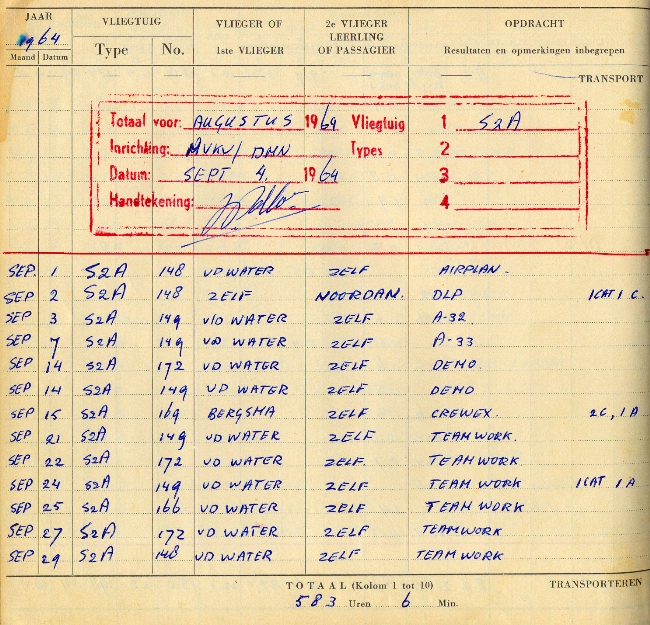 JAAR VLIEGTUIG VLIEGER OF 2e VLIEGER OPDRACHT
1964 LEERLING
Maand Datum Type No. 1ste VLIEGER OF PASSAGIER Resultaten en opmerkingen inbegrepen
TRANSPORT
Totaal voor: AUGUSTUS 1964 Vliegtuig 1 S2A
Inrichting: MVKV/ DMN Types 2
Datum: SEPT 4. 1964 3
Handtekening: 4
SEP. 1 S2A 148 VD WATER ZELF AIRPLAN.
SEP 2 S2A 148 ZELF NOORDAM. DLP 1CAT 1 C.
SEP 3 S2A 149 V/D WATER ZELF A-32
SEP 7 S2A 149 VD WATER ZELF A-33
SEP 14 S2A 172 VD WATER ZELF DEMO.
SEP 14 S2A 149 VD WATER ZELF DEMO
SEP 15 S2A 169 BERGSMA ZELF CREWEX. 2C, 1A
SEP 21 S2A 149 VD WATER ZELF TEAMWORK.
SEP 22 S2A 172 VD WATER ZELF. TEAMWORK
SEP 24 S2A 149 VD WATER ZELF TEAM WORK 1CAT 1A
SEP 25 S2A 166 VD WATER ZELF TEAM WORK
SEP 27 S2A 172 VD WATER ZELF TEAMWORK
SEP 29 S2A 148 VD WATER ZELF TEAM WORK
TOTAAL (Kolom 1 tot 10) TRANSPORTEREN
583 Uren 6 Min.